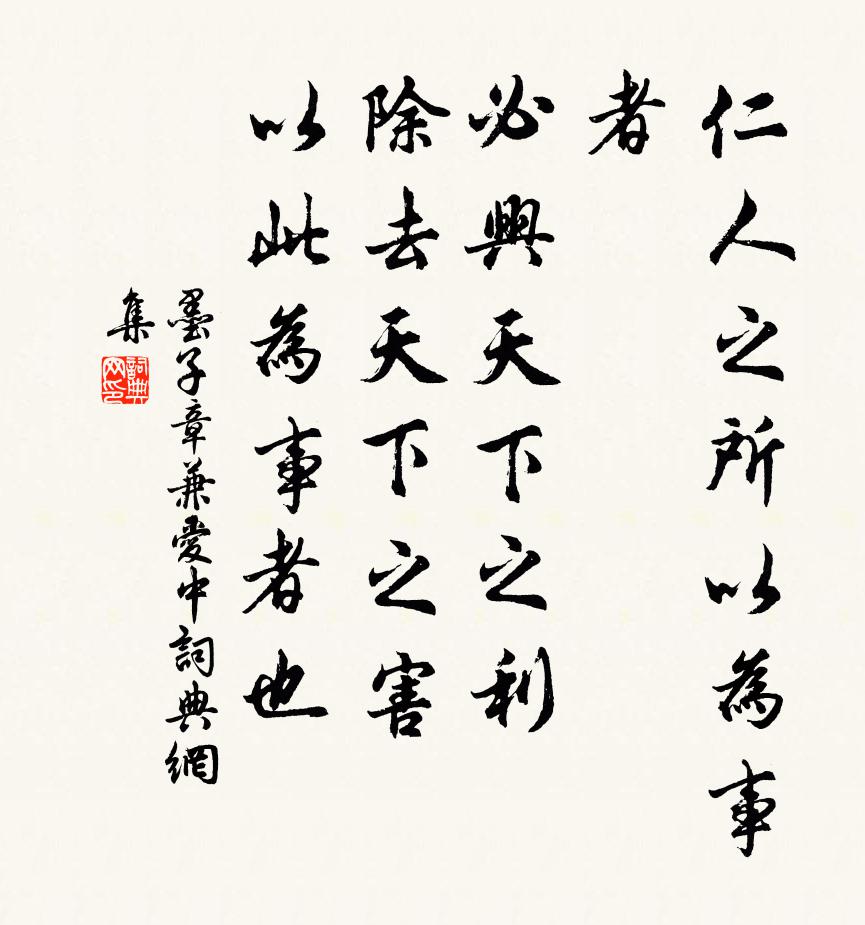 仁人之所以為事
者
必興天下之利
除去天下之害
以此為事者也
墨子章兼愛中詞典網
集
詞典
网印